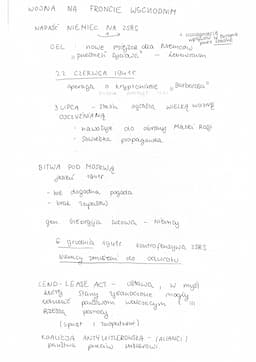 WOJNA NA FRONCIE WSCHODNIM
NAPAŚĆ NIEMIEC NA ZSRS
CEL : nowe miejsce dla Niemców
"przestrzeń życiowa" - Lebensraum
22 CZERWCA 1941r
operacja o kryptonimie "Barbarossa"
3 LIPCA - Stalin ogłasza WIELKĄ WOJNĘ
OJCZYŹNIANĄ
- nawołuje do obrony Matki Rosji
- sowiecka propaganda
BITWA POD MOSKWĄ
jesień 1941r
- pogoda
- brak zapasów
gen. Gieorgija Żukowa - Niemcy
6 grudnia 1941r kontrofensywa ZSRS
Niemcy zmuszeni do odwrotu
LEND-LEASE ACT - ustawa, w myśl
której Stany Zjednoczone mogły
udzielać państwom walczącym z III
Rzeszą pomocy
(sprzęt i zaopatrzenie)
KOALICJA ANTYHITLEROWSKA - (ALIANCI)
państwa przeciw Hitlerowi